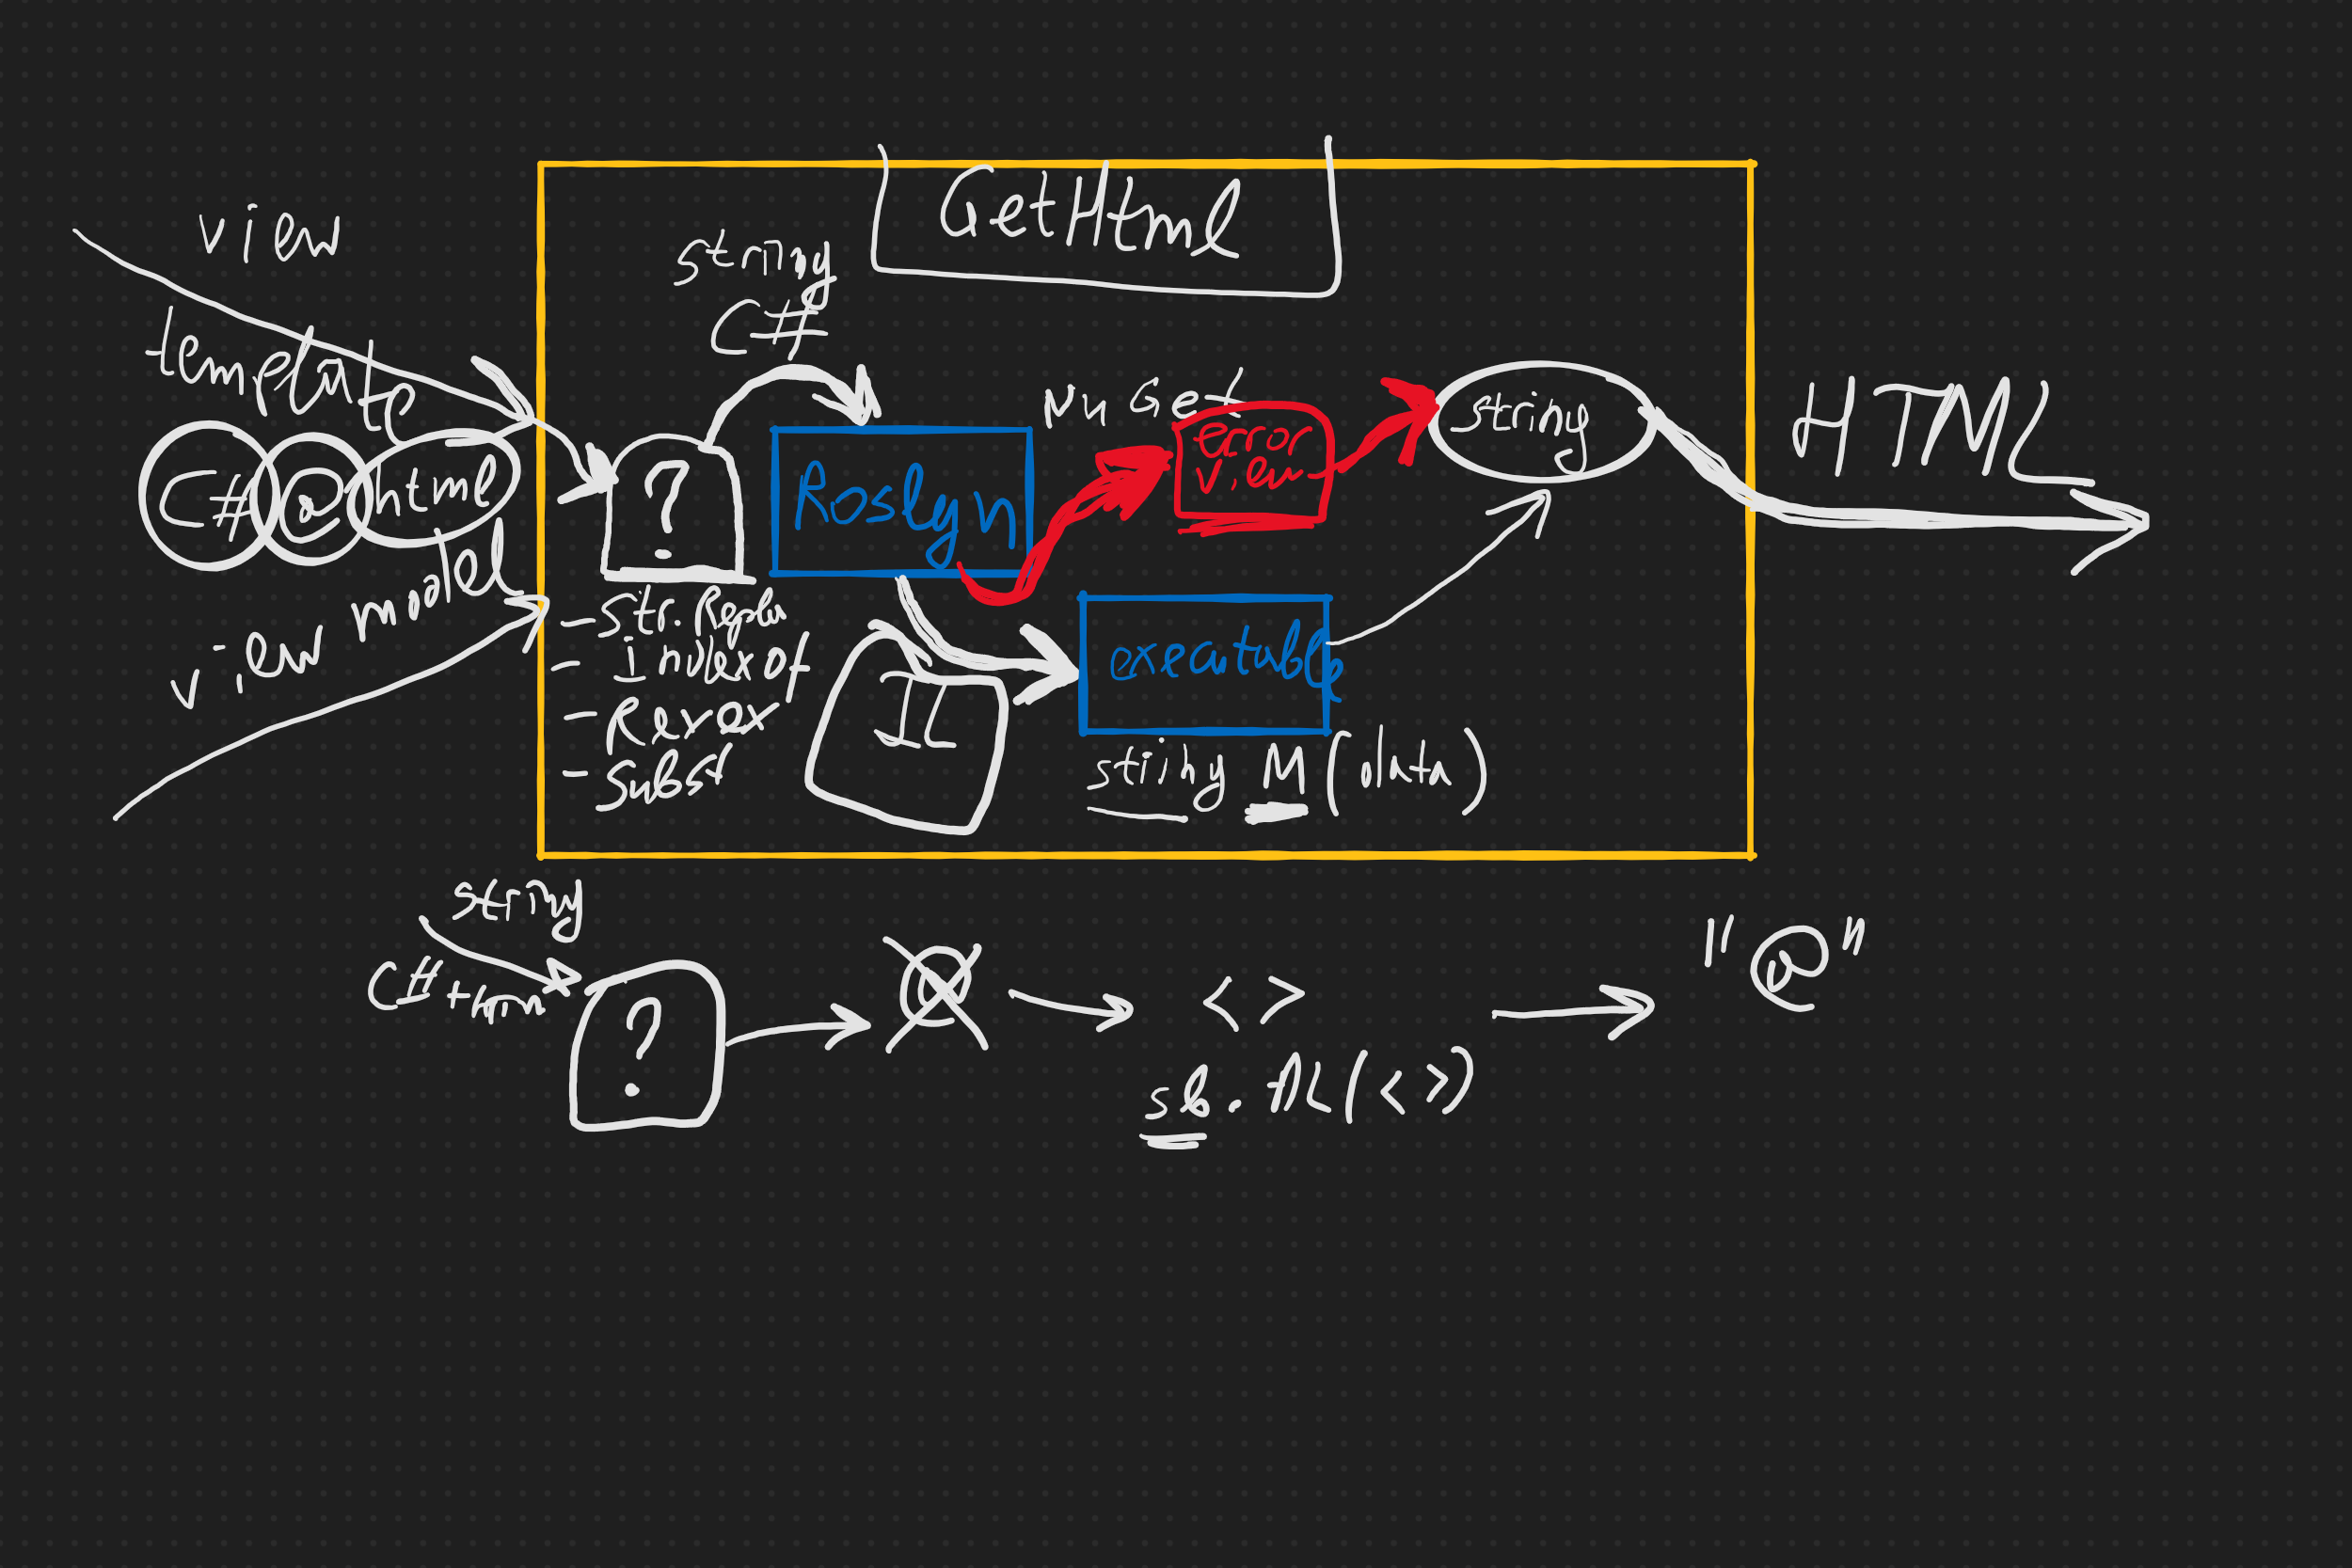 view
template
C# @ html
view model
GetHtml
string
C#
?
- str.Repla
- indexof
- Rexex
- subst
Roslyn
NuGet
error
view
string
HTML
IL
executable
string M(data)
string
C# + htm
?
@
< >
sb.AL(< >)
"@"